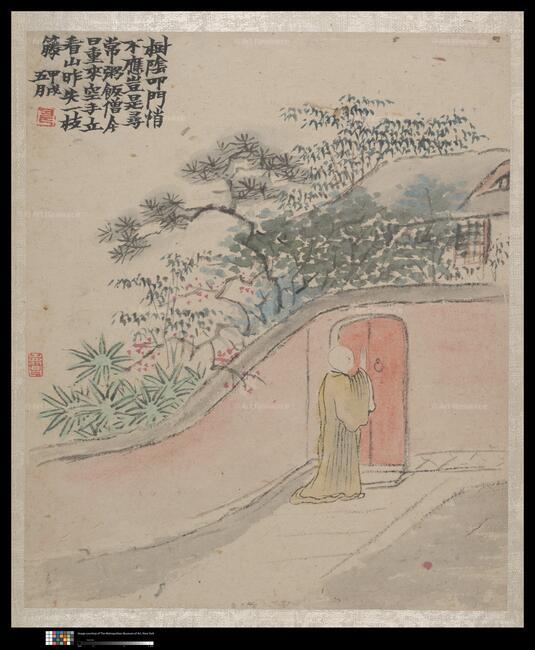 樹陰叩門悄
不應豈是尋
常粥飯僧今
日重來空手立
看山昨失一枝
籐
甲戌
五月
© Art Resource
Image courtesy of The Metropolitan Museum of Art, New York